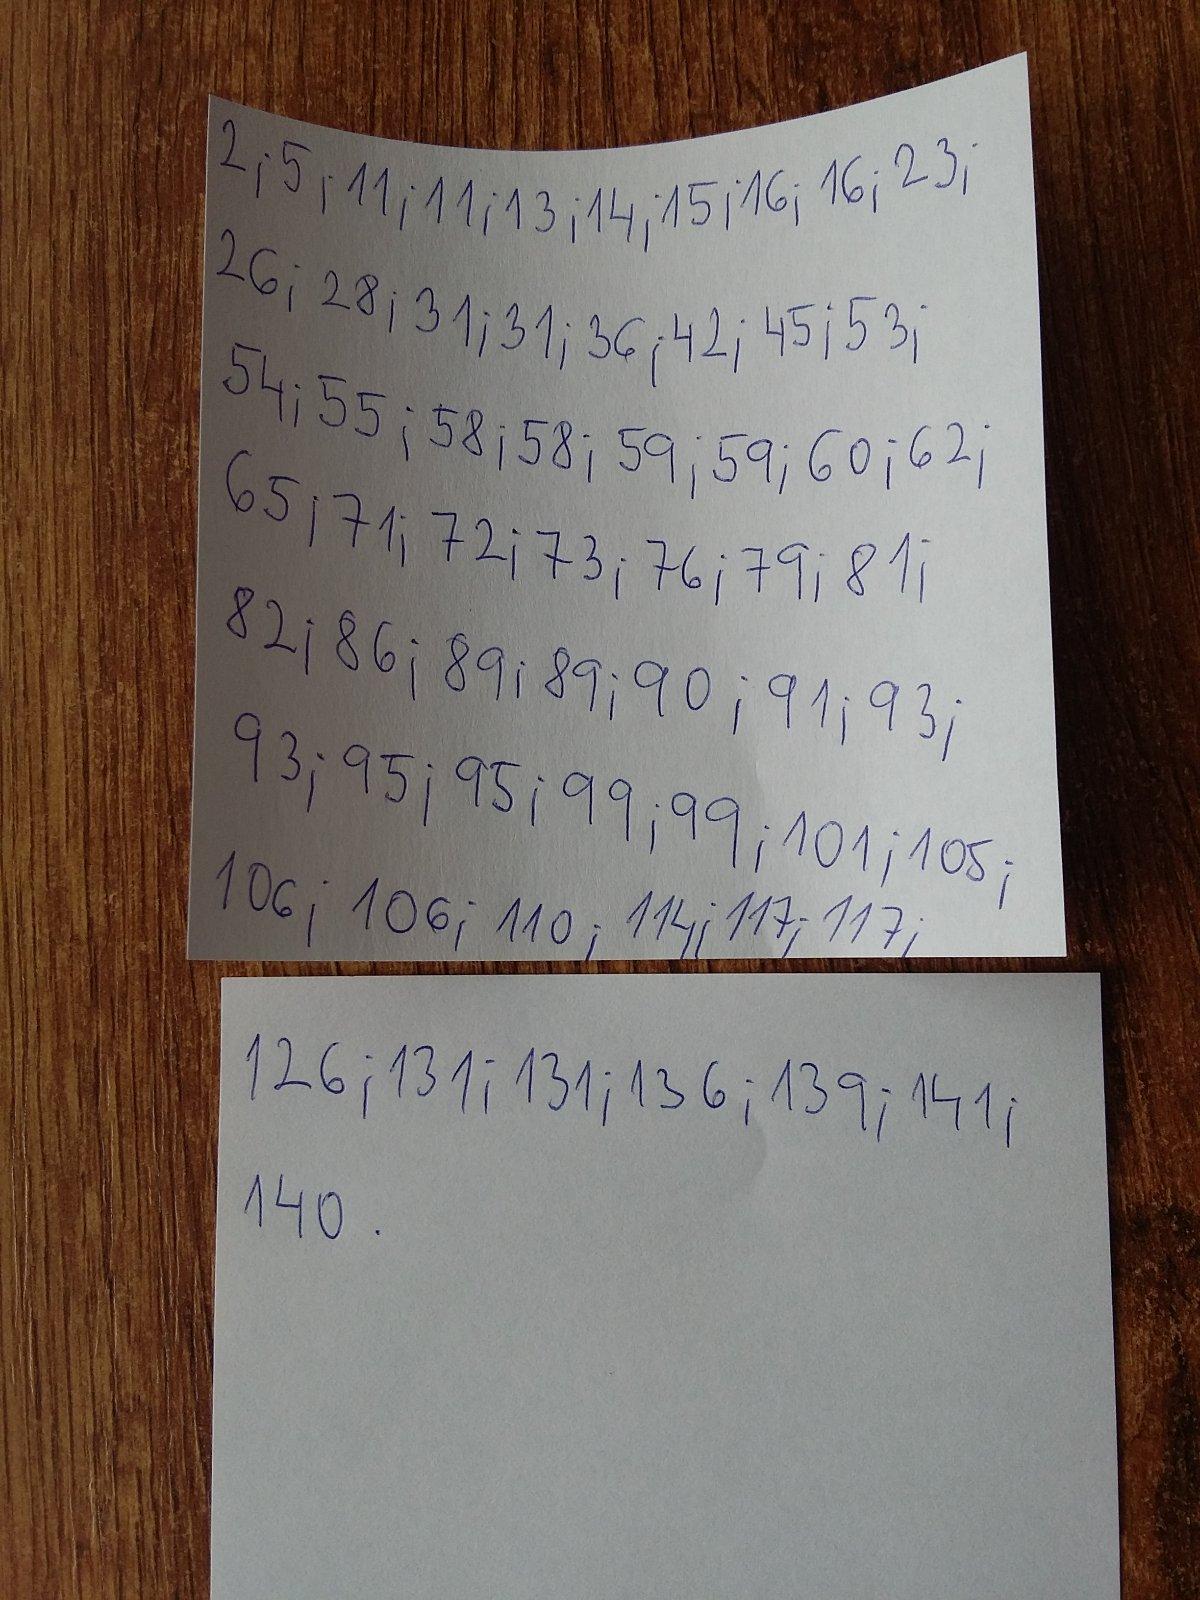 2; 5; 11; 11; 13; 14; 15; 16; 16; 23;
26; 28; 31; 31; 36; 42; 45; 53;
54; 55; 58; 58; 59; 59; 60; 62;
65; 71; 72; 73; 76; 79; 81;
82; 86; 89; 89; 90; 91; 93;
93; 95; 95; 99; 99; 101; 105;
106; 106; 110; 114; 117; 117;
126; 131; 131; 136; 139; 141;
140.